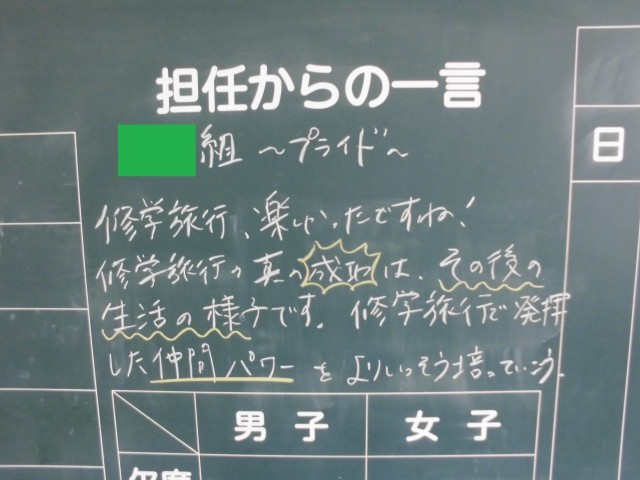 担任からの一言
組 〜プライド〜
日
修学旅行、楽しかったですね!
修学旅行の真の成功は、その後の
生活の様子です。修学旅行で発揮
した仲間パワーをよりいっそう培っていこう。
男子 女子
欠席